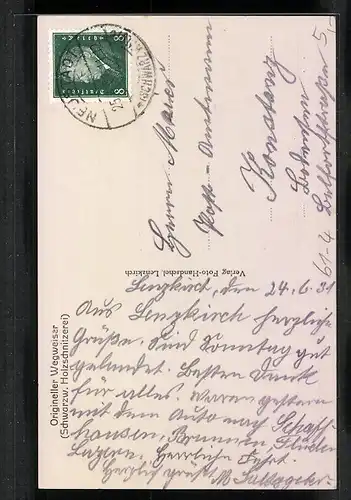 Origineller Wegweiser
(Schwarzw. Holzschnitzerei)
Verlag Foto-Handschel, Lenzkirch
8
8
NEUSTADT
(SCHWARZW)
25
Herrn Maier
Post-Amtmann
Konstanz
Bodensee
61-4
Lenzkirch, den 24.6.31
Aus Lenzkirch herzliche
Grüße. Sind Sonntag gut
gelandet. Besten Dank
für alles. Waren gestern
mit dem Auto nach Schaff-
hausen, Brunnen,
Luzern. Herrliche Fahrt.
Herzlich grüßt M.